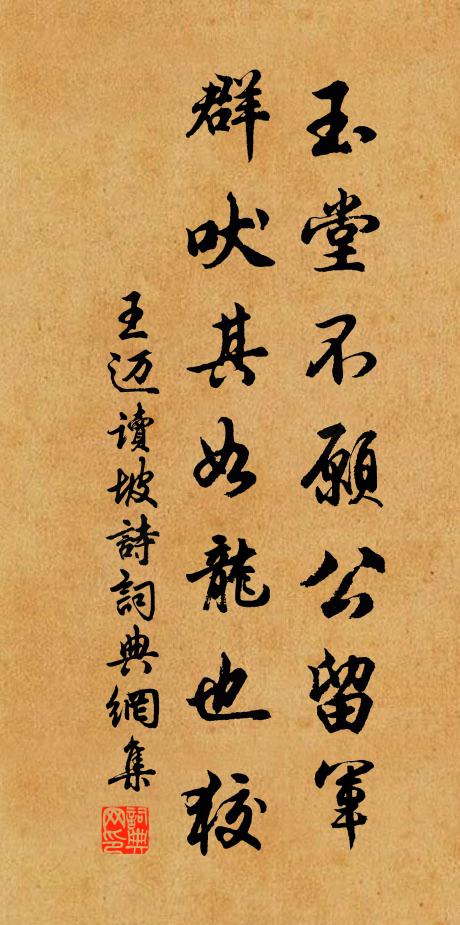 玉堂不願公留軍
群吠其如龍也狡
王迈讀坡詩詞典網集
詞典
网印